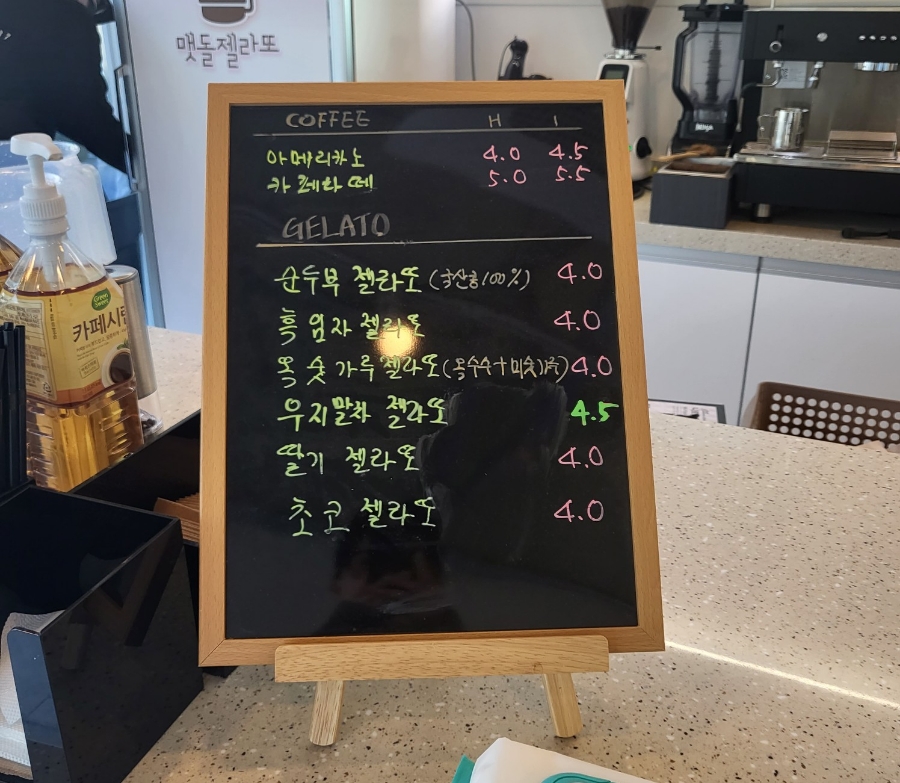 맷돌젤라또
COFFEE H I
아메리카노 4.0 4.5
카페라떼 5.0 5.5
GELATO
순두부 젤라또 (국산콩 100%) 4.0
흑임자 젤라또 4.0
옥숫가루 젤라또 (옥수수+미숫가루) 4.0
우지말차 젤라또 4.5
딸기 젤라또 4.0
초코 젤라또 4.0
Green Sweet
카페시럽
Ninja